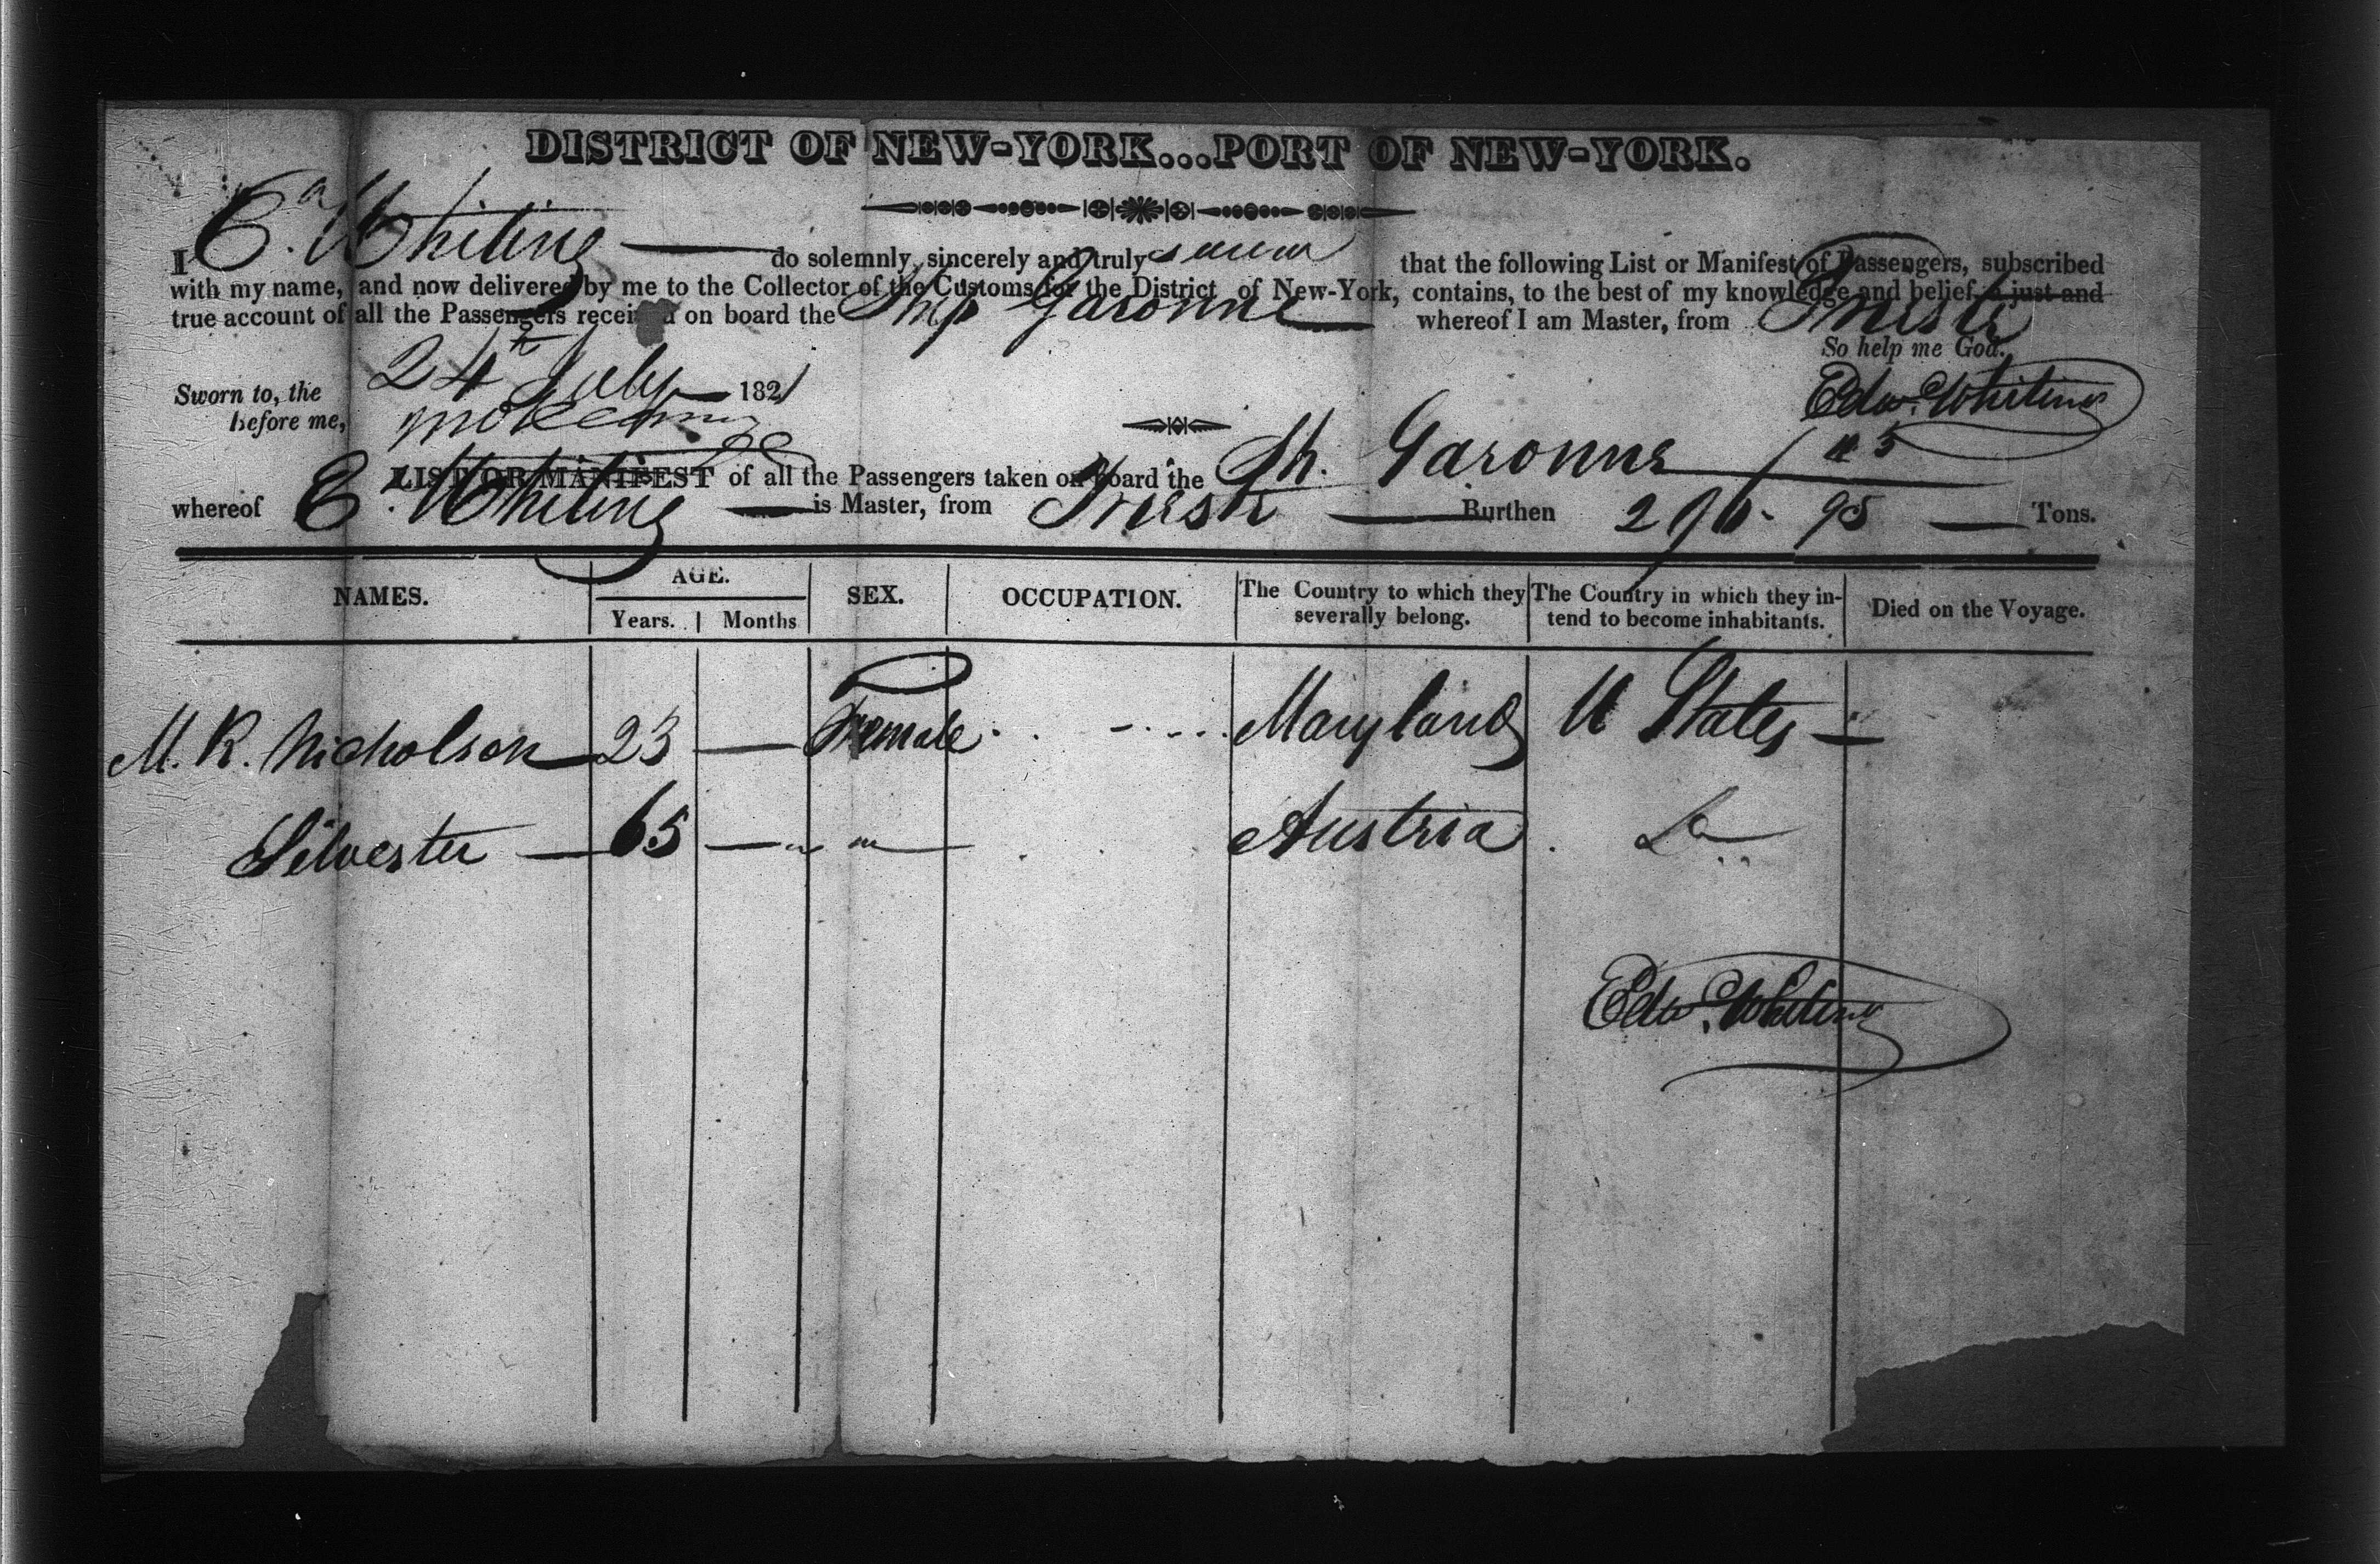 DISTRICT OF NEW-YORK...PORT OF NEW-YORK.
I E. Whiting do solemnly, sincerely and truly swear that the following List or Manifest of Passengers, subscribed
with my name, and now delivered by me to the Collector of the Customs for the District of New-York, contains, to the best of my knowledge and belief, a just and
true account of all the Passengers received on board the Ship Garonne whereof I am Master, from Trieste
So help me God.
Sworn to, the 24th July 1821
before me,
Edw. Whiting
LIST OR MANIFEST of all the Passengers taken on board the Sh. Garonne
whereof E. Whiting is Master, from Trieste Burthen 95 Tons.
NAMES. AGE. SEX. OCCUPATION. The Country to which they severally belong. The Country in which they intend to become inhabitants. Died on the Voyage.
Years. Months
M. R. Nicholson 23 — Female Maryland U States —
Silvester 65 — " " Austria Do
Edw. Whiting